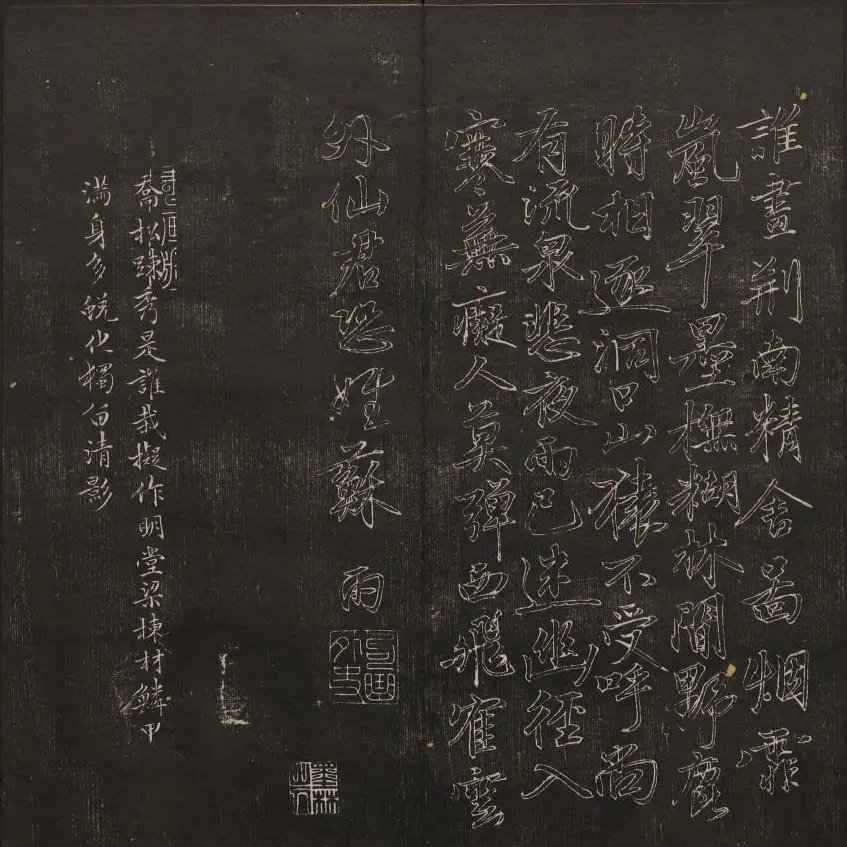 誰畫荆南精舍圖烟霏
嵐翠墨橅糊林間野鹿
時相逐洞口山猿不受呼尚
有流泉悲夜雨已迷幽徑入
寒蕪癡人莫彈西飛隺雲
外仙君恐姓蘇 雨
喬松踈秀是誰栽擬作明堂梁棟材鱗甲
滿身多蜕化獨留清影